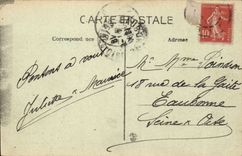 CARTE POSTALE
Correspondance
Adresse
Pensons à vous
Juliette & Maurice
Mr & Mme Poindron
18 rue de la Gaîté
Eaubonne
Seine & Oise
10